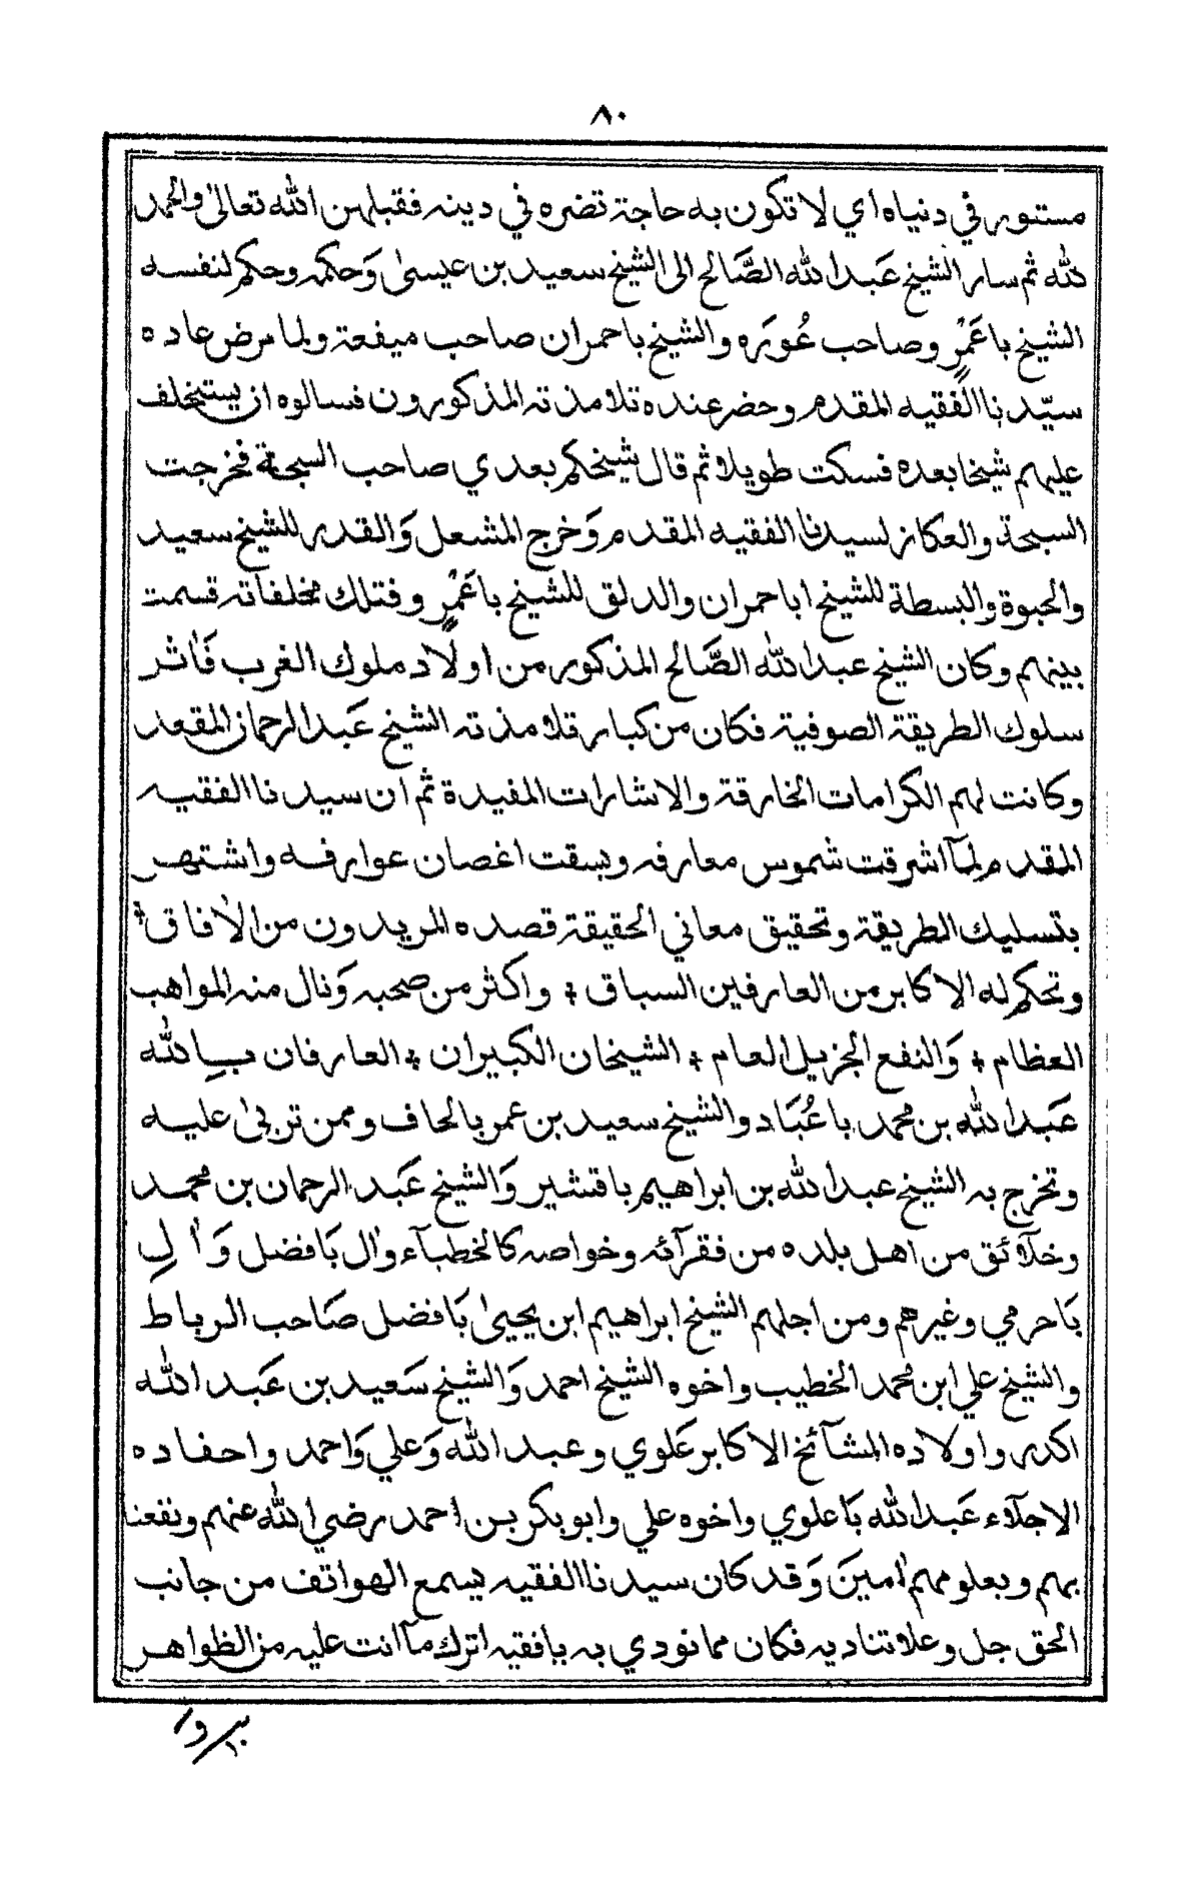 ٨٠
مستور في دنياه اي لا تكون به حاجة تضره في دينه فقبلهن الله تعالىٰ والحمد
لله ثم سار الشيخ عَبد الله الصَّالح الى الشيخ سعيد بن عيسىٰ وَحكمه وحكم لنفسه
الشيخ باعَمَرٍ وصاحب عُورَه والشيخ باحمران صاحب ميفعة ولما مرض عاده
سيّدنا الفقيه المقدم وحضر عنده تلامذته المذكورون فسالوه ان يستخلف
عليهم شيخا بعده فسكت طويلا ثم قال شيخكم بعدي صاحب السبحة فخرجت
السبحة والعكاز لسيدنا الفقيه المقدم وَخرج المشعل وَالقدر للشيخ سعيد
والحبوة والبسطة للشيخ اباحمران والدلق للشيخ باعَمَرٍ وفتلك مخلفاته قسمت
بينهم وكان الشيخ عبد الله الصَّالح المذكور من اولاد ملوك الغرب فَاٰثر
سلوك الطريقة الصوفية فكان من كبار تلامذته الشيخ عَبد الرحمان المقعد
وكانت لهم الكرامات الخارقة والاشارات المفيدة ثم ان سيدنا الفقيه
المقدم لمآ اشرقت شموس معارفه وبسقت اغصان عوارفه واشتهر
بتسليك الطريقة وتحقيق معاني الحقيقة قصده المريدون من الاٰفاق ⁕
وتحكم له الاكابر من العارفين السباق ⁕ واكثر من صحبه وَنال منه المواهب
العظام ⁕ وَالنفع الجزيل العام ⁕ الشيخان الكبيران ⁕ العارفان بِالله
عَبد الله بن محمد باعُبَاد والشيخ سعيد بن عمر بالحاف وممن تربىٰ عليه
وتخرج به الشيخ عبد الله بن ابراهيم باقشير وَالشيخ عَبد الرحمان بن محمد
وخلآئق من اهل بلده من فقرآئه وخواصه كالخطبآء واٰل بَافضل وَاٰلِ
بَاحرمي وغيرهم ومن اجلهم الشيخ ابراهيم ابن يحيىٰ بَافضل صَاحب الرباط
والشيخ علي ابن محمد الخطيب واخوه الشيخ احمد وَالشيخ سَعيد بن عَبد الله
اكدر واولاده المشآئخ الاكابر عَلوي وعبد الله وَعلي وَاحمد واحفاده
الاجلآء عَبد الله بَاعلوي واخوه علي وابو بكر بن احمد رضي الله عنهم ونفعنا
بهم وبعلومهم اٰمينَ وَقد كان سيدنا الفقيه يسمع الهواتف من جانب
الحق جل وعلا تناديه فكان مما نودي به يا فقيه اترك مآ انت عليه من الظواهر